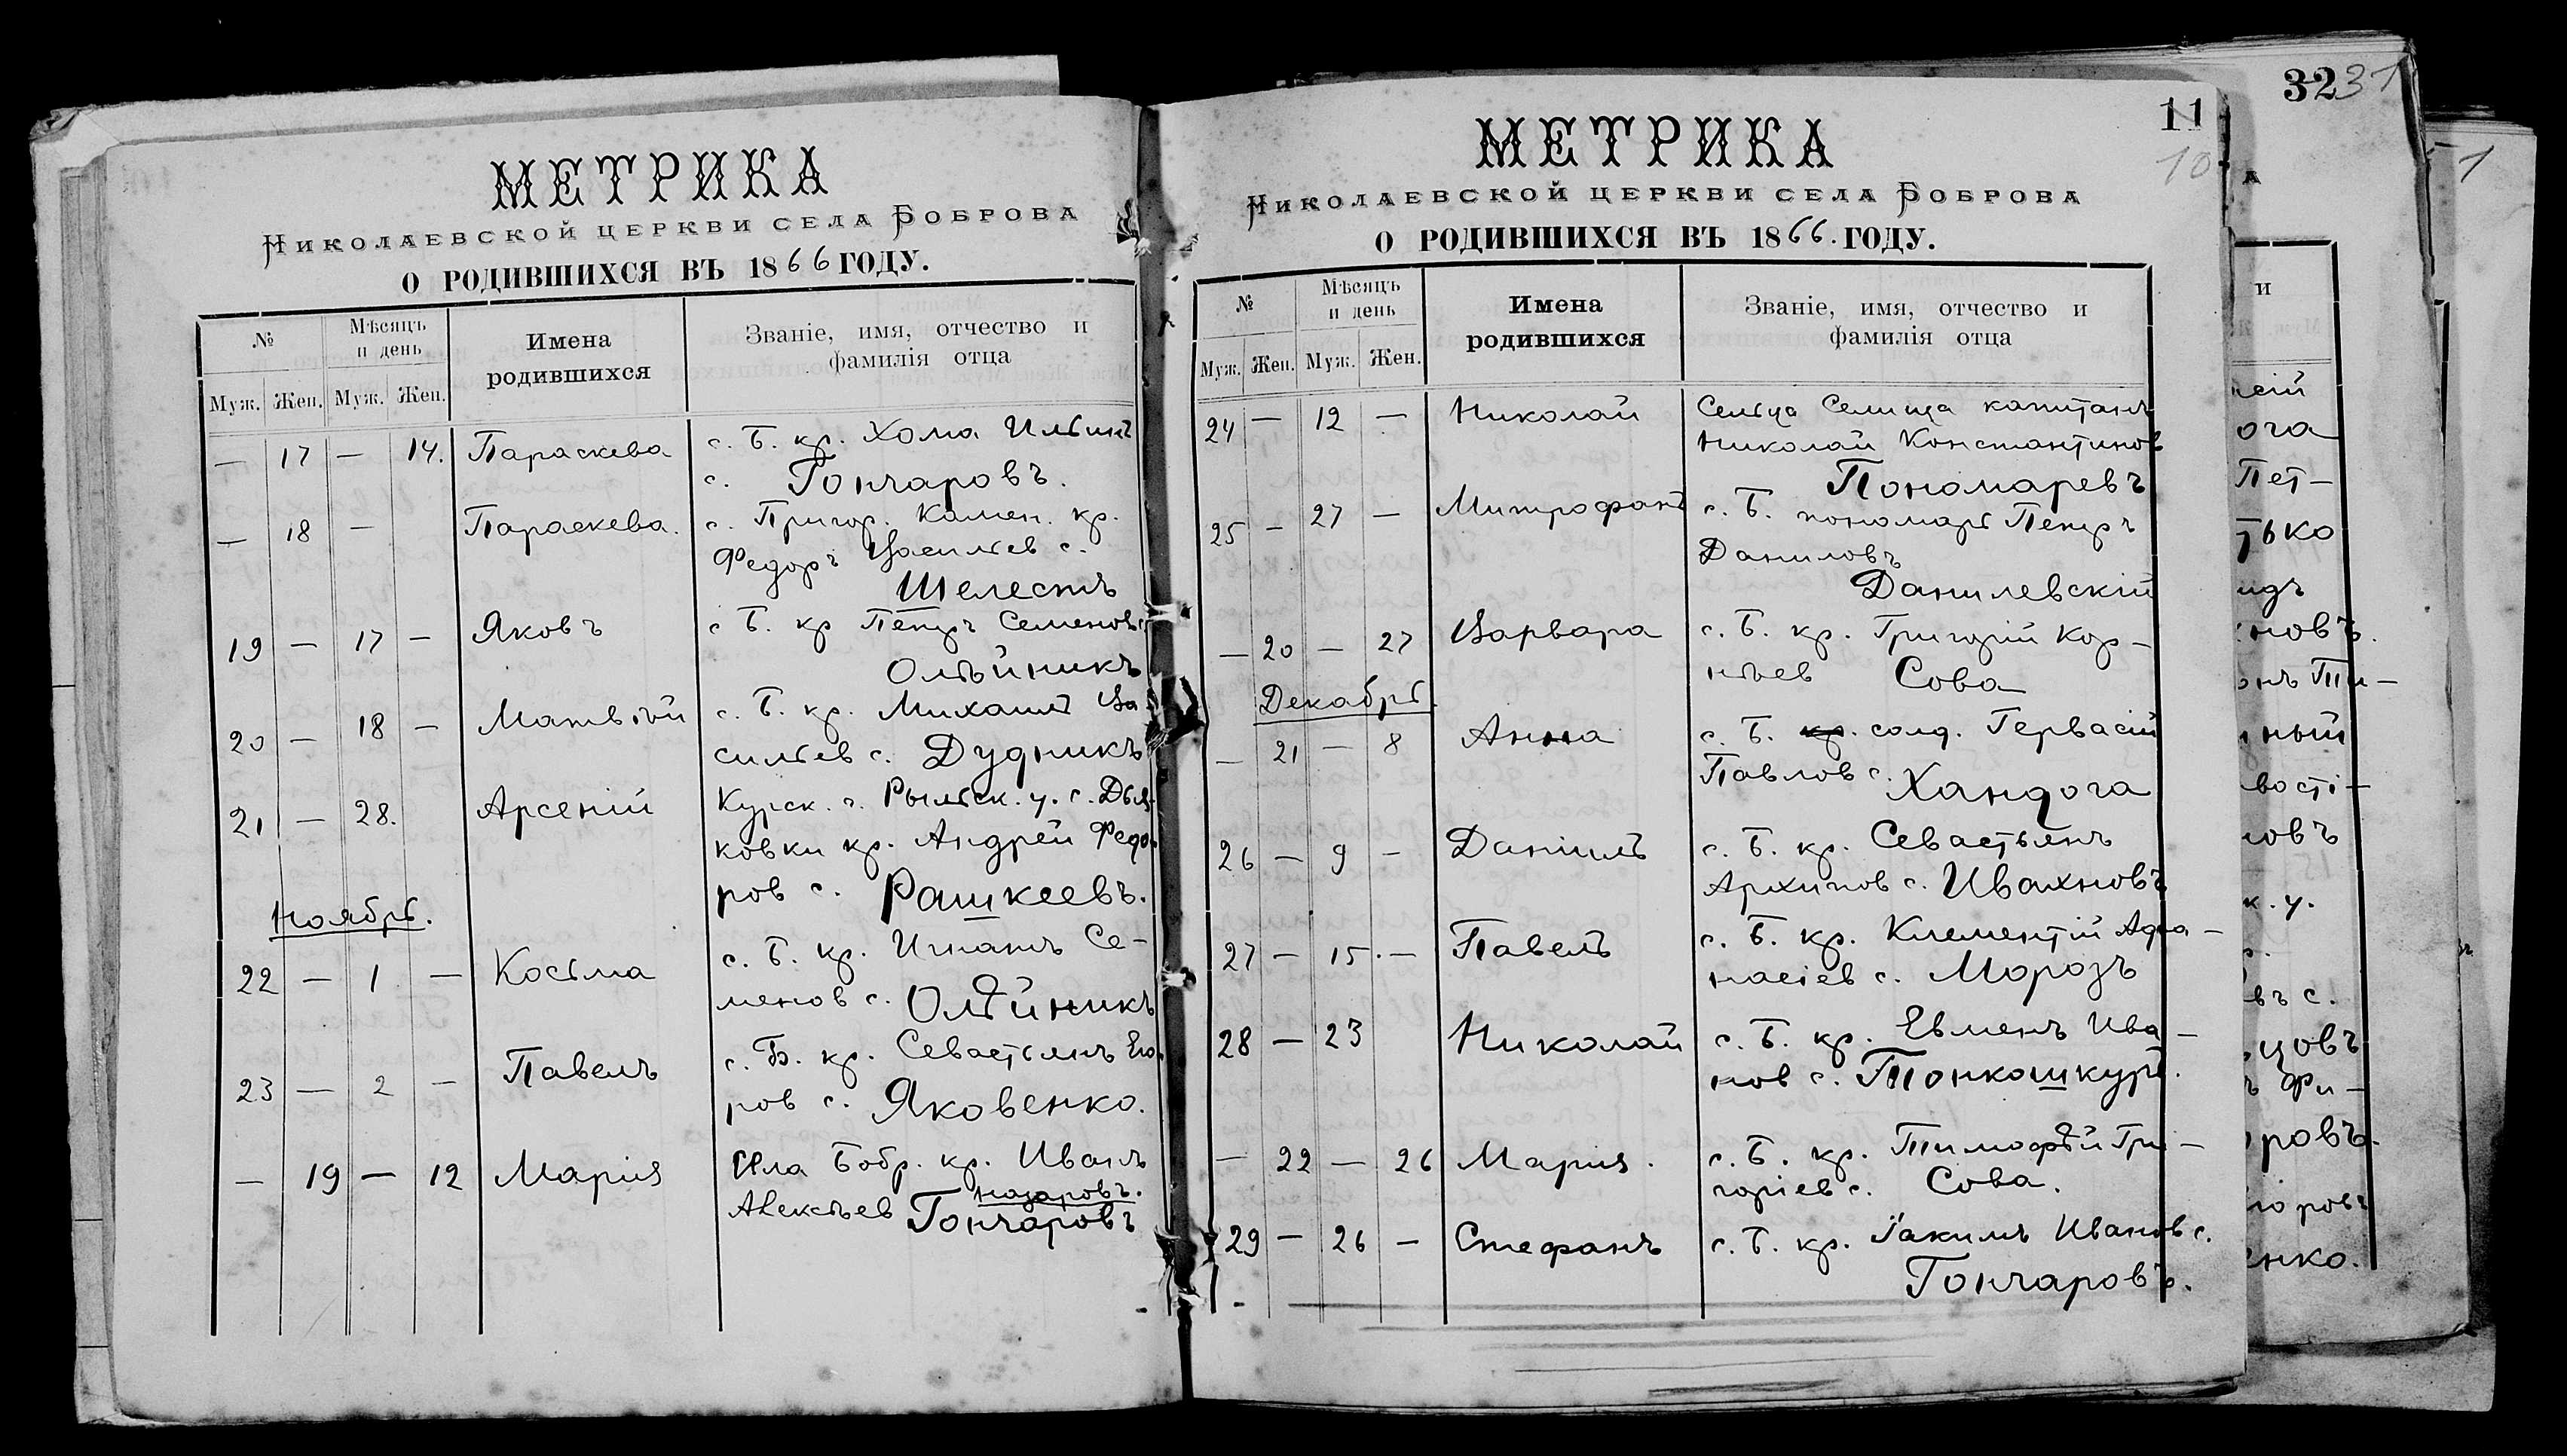 МЕТРИКА
Николаевской церкви села Боброва
О РОДИВШИХСЯ ВЪ 1866 ГОДУ.
№ Мѣсяцъ и день Имена родившихся Званіе, имя, отчество и фамилія отца
Муж. Жен. Муж. Жен.
— 17 — 14. Параскева с. Б. кр. Хома Ильинъ
с. Гончаровъ.
— 18 — Параскева. с. Пригор. Камен. кр.
Федоръ Васильев с.
Шелестъ
19 — 17 — Яковъ с Б. кр Петръ Семенов с
Олѣйникъ
20 — 18 — Матвѣй с. Б. кр. Михаилъ Ва
сильев с. Дудникъ
21 — 28. Арсеній Курск. г. Рыльск. у. с. Дья-
ковки кр. Андрей Федо-
ров с. Рашкеевъ.
Ноябрь.
22 — 1 — Косьма с. Б. кр. Игнатъ Се-
менов с. Олѣйникъ
23 — 2 — Павелъ с. Б. кр. Севастьянъ Его-
ров с. Яковенко.
— 19 — 12 Марія села Бобр. кр. Иванъ
назаровъ.
Алексѣев Гончаровъ
11
10
МЕТРИКА
Николаевской церкви села Боброва
О РОДИВШИХСЯ ВЪ 1866. ГОДУ.
№ Мѣсяцъ и день Имена родившихся Званіе, имя, отчество и фамилія отца
Муж. Жен. Муж. Жен.
24 — 12 — Николай Сельца Селища капитанъ
Николай Константинов
Пономаревъ
25 — 27 — Митрофанъ с. Б. пономарь Петръ
Даниловъ
Данилевскій
— 20 — 27 Варвара с. Б. кр. Григорій Кор-
нѣев Сова
Декабрь.
— 21 — 8 Анна с. Б. кр. солд. Гервасій
Павлов с. Хандога
26 — 9 — Даніилъ с. Б. кр. Севастьянъ
Архипов с. Ивахновъ
27 — 15. — Павелъ с. Б. кр. Климентій Афа-
насіев с. Морозъ
28 — 23 Николай с. Б. кр. Евменъ Ива-
нов с. Тонкошкуръ.
— 22 — 26 Марія. с. Б. кр. Тимофѣй Гри-
горіев с. Сова.
29 — 26 — Стефанъ с. Б. кр. Іакимъ Иванов с.
Гончаровъ.
32 31
1
А
и
ога
Пет-
тько
новъ.
ный
новъ
к. у.
въ с.
Фи-
ровъ.
енко.